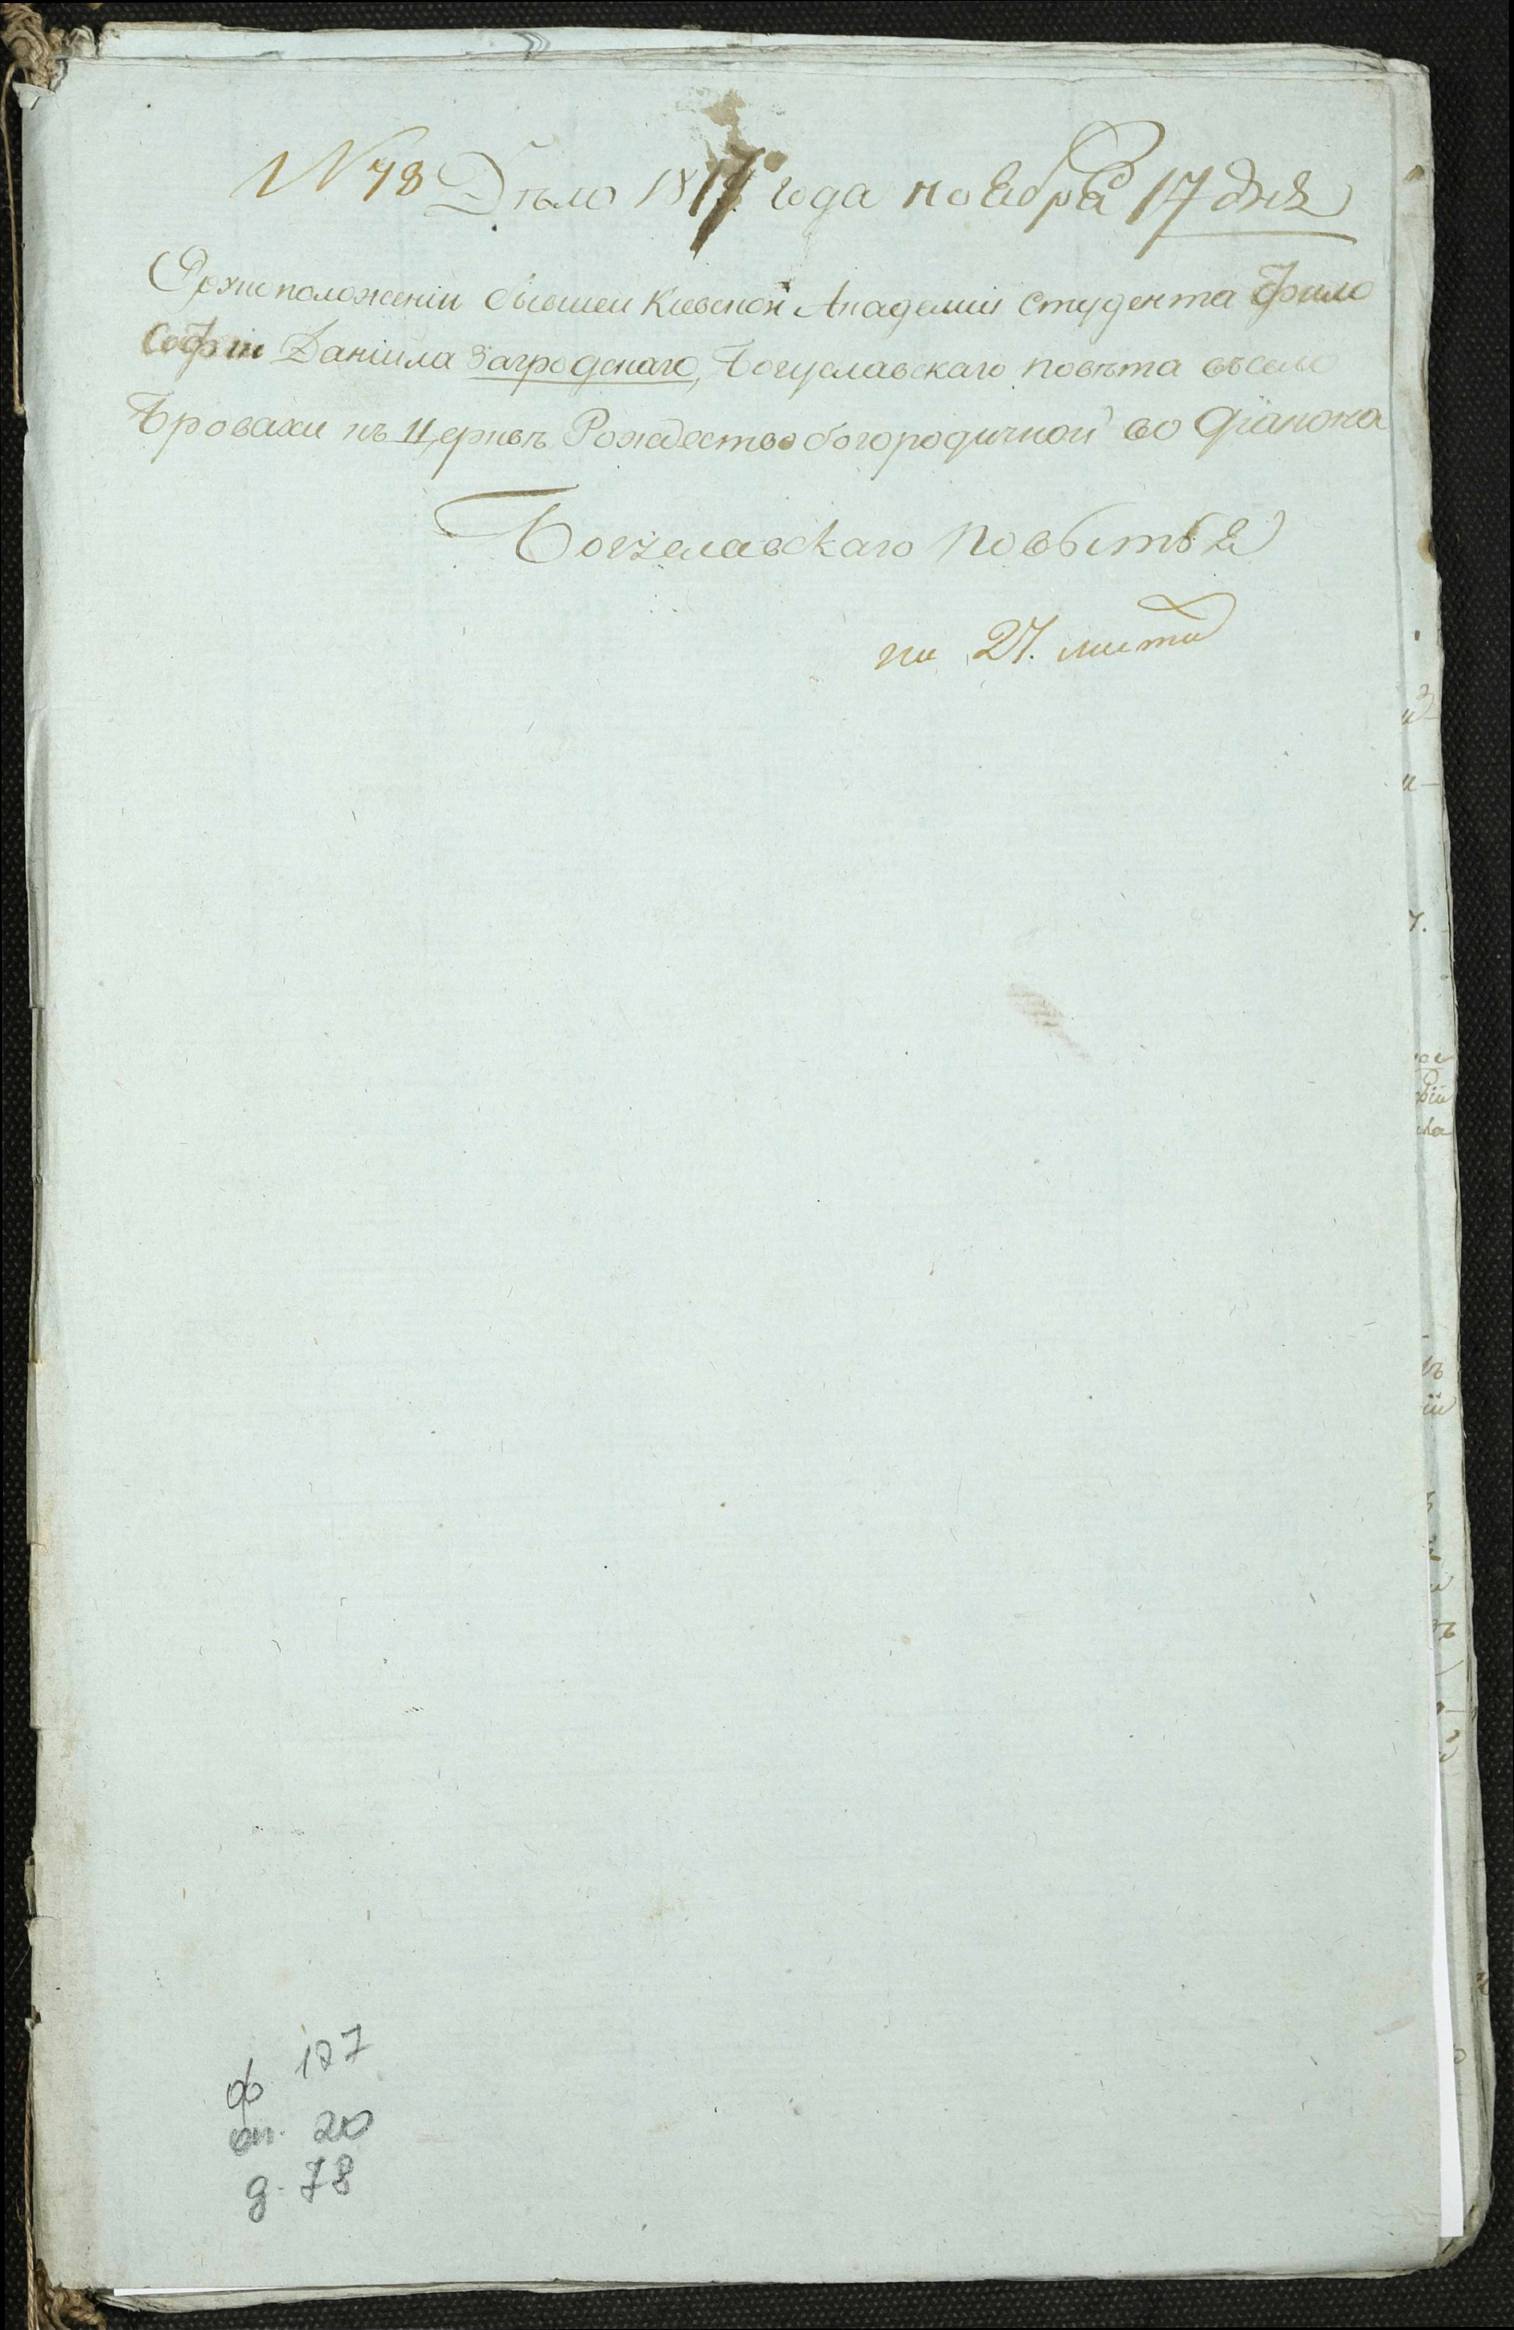 N 78 Дѣло 1817 года ноября 17 дня
О рукоположеніи бывшей Кіевской Академіи студента Фило
софіи Даніила Загродскаго, Богуславскаго повѣта въ село
Бровахи къ Церквѣ Рождество богородичной во Діакона
Богуславскаго повытья
на 27. листа
ф 127
оп. 20
д. 78